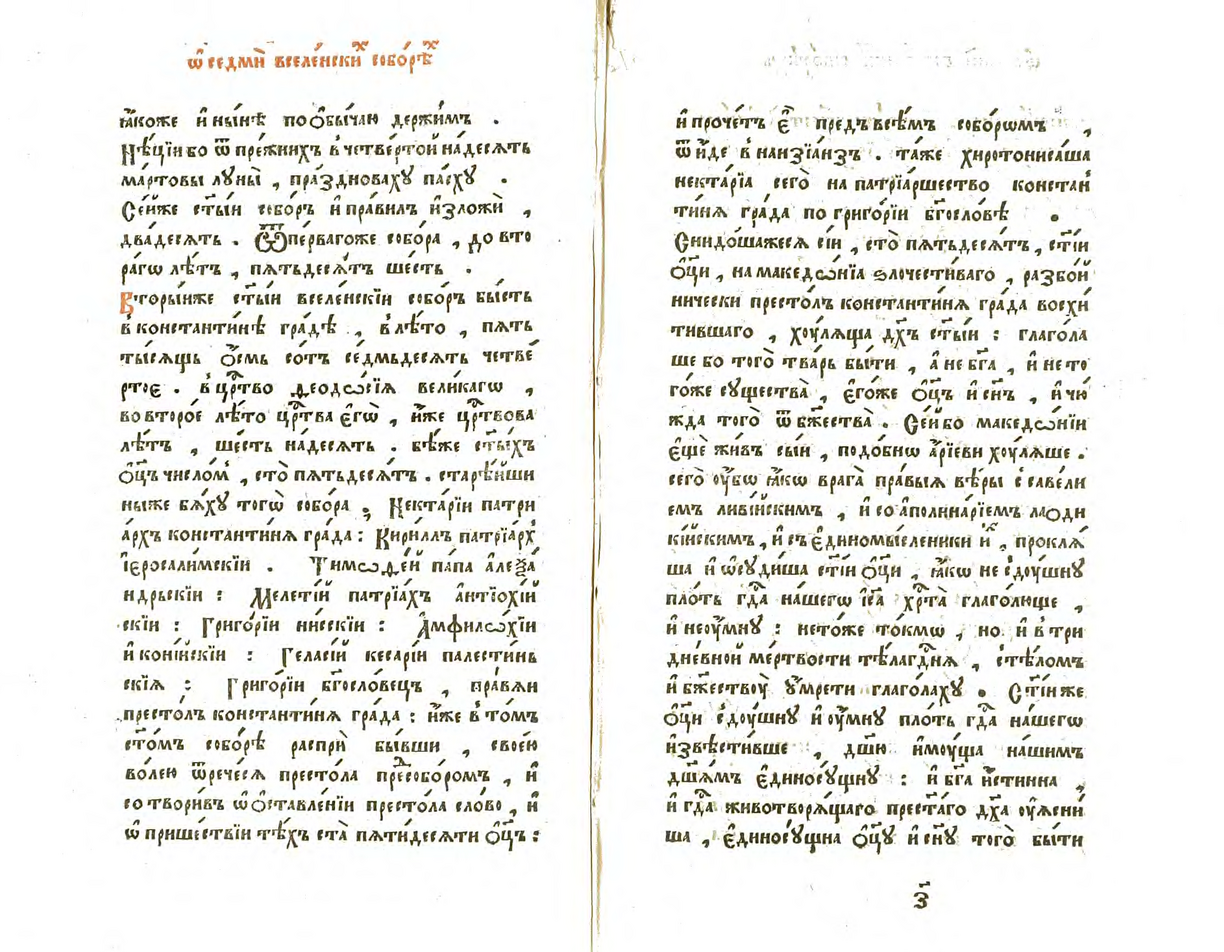 ѡ҆ седмѝ вселе́нски́хъ собо́рѣхъ
ꙗ҆́коже и҆ ны́нѣ поѻ҆бы́чаю держи́мъ .
Нѣ́цыи бо ѿ пре́жнихъ в̾ четве́ртой на́десять
мартовы луны̀ , пра́здноваху па́сху .
Се́йже ст҃ы́и собо́ръ и҆ пра́вилъ и҆зложѝ ,
два́десять . Ѿпе́рвагоже собо́ра , до вто
ра́гѡ лѣ́тъ , пятьдеся́тъ ше́сть .
Вторы́йже ст҃ы́и вселе́нскїи собо́ръ бы́сть
в̾ константи́нѣ гра́дѣ , в̾лѣ́то , пя́ть
ты́сящь ѻ҆́смь со́тъ се́дмьдесятъ четве́
ртое . в̾ црⷭ҇тво ѳеодѡ́сїя вели́кагѡ ,
во второ́е лѣ́то црⷭ҇тва є҆гѡ̀ , и҆́же црⷭ҇твова
лѣ́тъ , ше́сть на́десять . бѣ́же ст҃ы́хъ
ѻ҆ц҃ъ число́м̾ , сто̀ пятьдеся́тъ . старѣ́йши
ныже бя́ху того̀ собо́ра ; Некта́рїи патри
а́рхъ константи́ня гра́да : Кири́ллъ патрїа́рх̾
і҆еросали́мскїи . Тимоѳе́й па́па але҆ѯа
ндрьскїи : Меле́тїй патрїа́хъ а҆нтїохі́й
скїи : Григо́рїи ни́сскїи : А҆мфило́хїи
и҆ коні́йскїи : Гела́сїй кесарі́и палести́нь
скїя : Григо́рїи бг҃осло́вецъ , пра́вяи
престо́лъ константи́ня гра́да : и҆́же в̾ то́мъ
ст҃о́мъ собо́рѣ ра́спри бы́вши , свое́ю
во́лею ѿрече́ся престо́ла преⷣсобо́ромъ , и҆
сотвори́въ ѡ҆ ѻ҆ставле́нїи престо́ла сло́во , и҆
ѡ҆ прише́ствїи тѣ́хъ ста̀ пяти́десяти ѻ҆ц҃ъ :
и҆ проче́тъ є҆̀ предъ всѣ́мъ собо́рѡмъ ,
ѿи́де в̾ нанзїа́нзъ . та́же хиротониса́ша
некта́рїа сего̀ на патрїа́ршество констан̾
ти́ня гра́да по григо́рїи бг҃осло́вѣ .
Снидо́шажеся сїи , сто̀ пятьдеся́тъ , ст҃і́и
ѻ҆ц҃и , на македѡ́нїа ѕлочести́ваго , разбо́й
нически престо́лъ константи́ня гра́да восхи́
тившаго , ху́ляща дх҃ъ ст҃ы́и : глаго́ла
ше бо того̀ тва́рь бы́ти , а҆ не бг҃а , и҆ не то
го́же существа̀ , є҆го́же ѻ҆ц҃ъ и҆ сн҃ъ , и҆ чю́
жда того̀ ѿ бж҃ества̀ . Се́й бо македо́нїи
є҆щѐ жи́въ сы́и , подо́бнѡ а҆́рїеви ху́ляше .
сего̀ ᲂу҆̀бѡ ꙗ҆́кѡ врага̀ пра́выя вѣ́ры с савели
емъ ливі́йскимъ , и҆ со аполина́рїемъ лаоди
ки́йскимъ , и҆ съ є҆диномы́сленики и҆́хъ , прокля́
ша и҆ ѡ҆суди́ша ст҃і́и ѻ҆ц҃и , ꙗ҆́кѡ не ѕ҆ду́шну
пло́ть гдⷭ҇а на́шегѡ і҆с҃а хрⷭ҇та̀ глаго́люще ,
и҆ не ᲂу҆́мну : нето́же то́кмѡ , но и҆ в̾ три
дне́вной ме́ртвости тѣ́ла гдⷭ҇ня , с тѣ́ломъ
и҆ бж҃еству̀ ᲂу҆мре́ти глаго́лаху . Ст҃і́и же
ѻ҆ц҃и ѕ҆ду́шну и҆ ᲂу҆́мну пло́ть гдⷭ҇а на́шегѡ
и҆звѣ́стивше , дш҃ю и҆му́ща на́шимъ
дш҃я́мъ є҆диносу́щну : и҆ бг҃а и҆́стинна ,
и҆ гдⷭ҇а животворя́щаго прест҃а́го дх҃а ᲂу҆ясни́
ша , є҆диносу́щна ѻ҆ц҃у и҆ сн҃у того̀ бы́ти
з҃